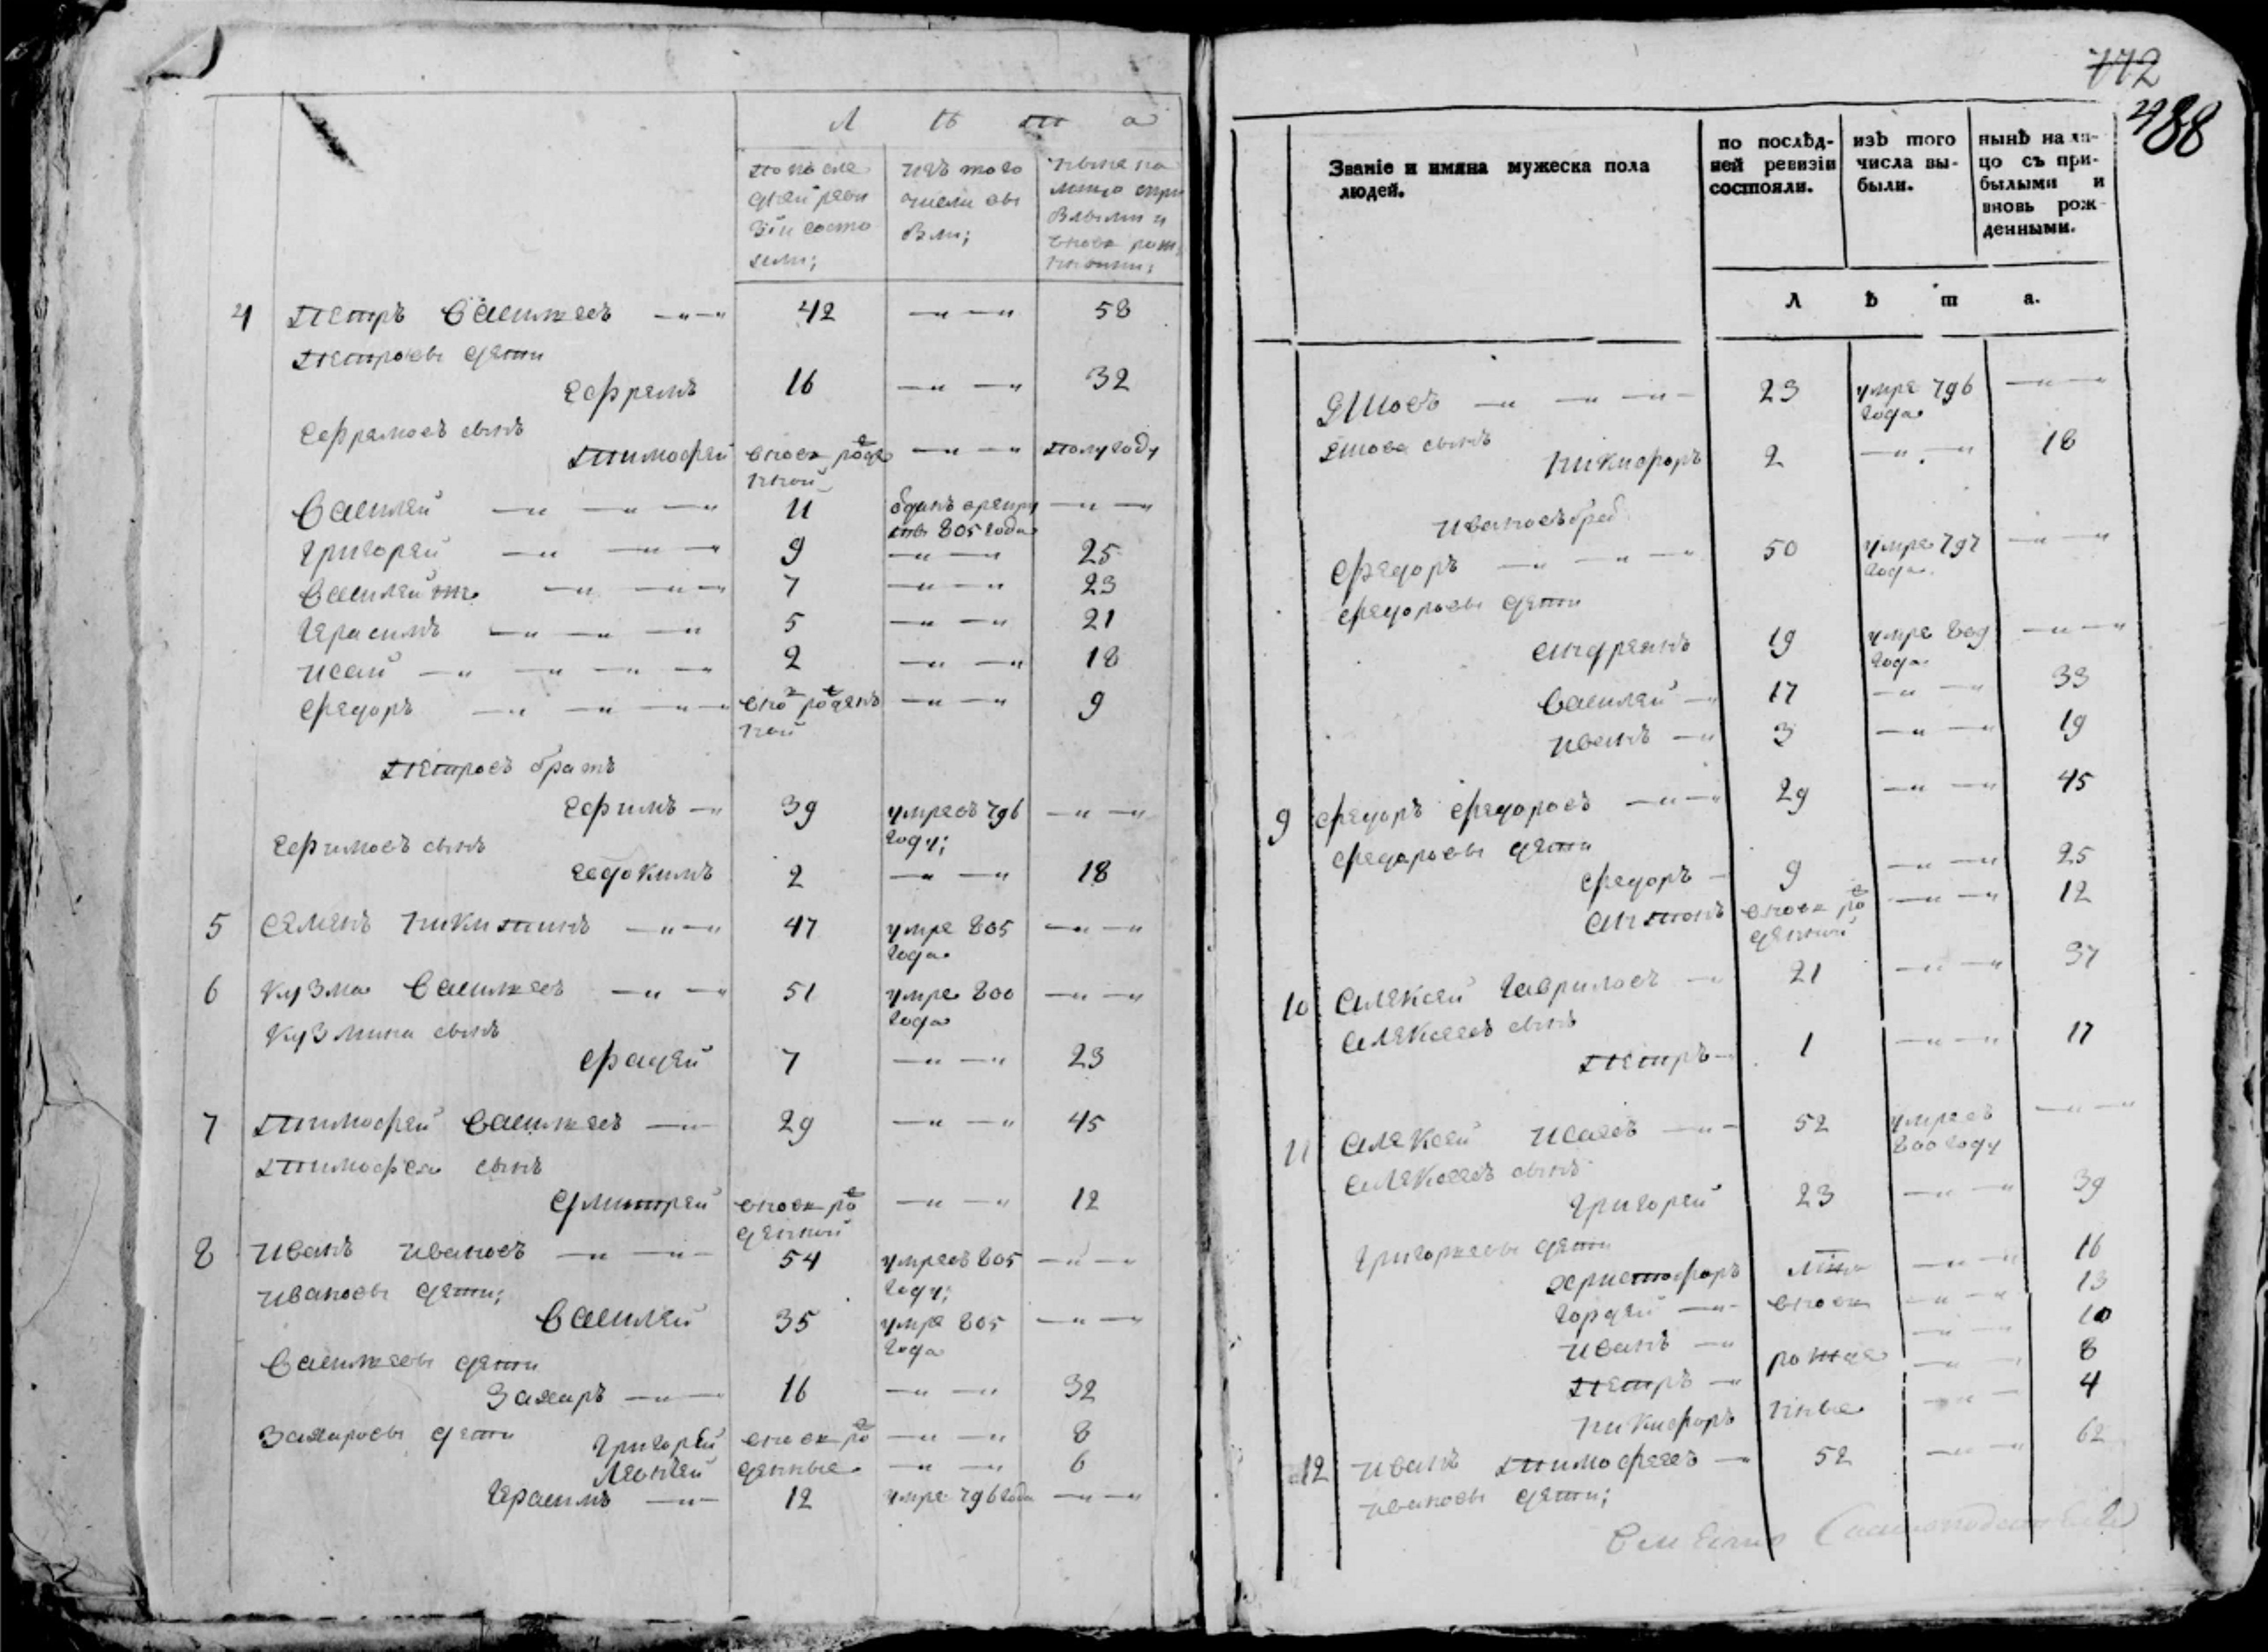 Л ѣ т а
по после
дней реви
зіи состо
яли;
изъ того
числа вы
были;
ныне на
лицо спри
былыми и
вновь рож
4 Петръ Васильевъ 42 58
Петровы дети
Ефремъ 16 32
Ефремовъ сынъ
Тимофей вновь рожде полугоду
нной
Василей 11 отданъ врекру
ты 805 года
Григорей 9 25
Василей же 7 23
Герасимъ 5 21
Исай 2 18
Федоръ вно рожден 9
ной
Петровъ братъ
Ефимъ 39 умре въ 796
году;
Ефимовъ сынъ
Евдокимъ 2 18
5 Семенъ Никитинъ 47 умре 805
года
6 Кузма Васильевъ 51 умре 800
года
Кузмина сынъ
Фадей 7 23
7 Тимофей Васильевъ 29 45
Тимофеев сынъ
Дмитрей вновь рож 12
денной
8 Иванъ Ивановъ 54 умре въ 805
году;
Ивановы дети;
Василей 35 умре 805
года
Васильевы дети
Захаръ 16 32
Захаровы дети Григорей вновь рож 8
Леонтей денные 6
Герасимъ 12 умре 796 года
772
488
Званіе и имяна мужеска пола
людей.
по послѣд-
ней ревизіи
состояли.
изъ того
числа вы-
были.
нынѣ на ли-
цо съ при-
былыми и
вновь рож-
денными.
Л ѣ т а.
23 умре 796
года
сынъ
Никифоръ 2 18
Ивановъ брат
Федоръ 50 умре 797
года
Федоровы дети
Андреянъ 19 умре 809
года
Василей 17 33
Иванъ 3 19
9 Федоръ Федоровъ 29 45
Федоровы дети
Федоръ 9 25
Антонъ вновь рож 12
денной
10 Алексей Гавриловъ 21 37
Алексеевъ сынъ
Петръ 1 17
11 Алексей Исаевъ 52 умре въ
800 году
Алексеевъ сынъ
Григорей 23 39
Григорьевы дети
Христофоръ 16
Гордей вновь 13
Иванъ 10
Петръ рожде 8
Никифоръ нные 4
12 Иванъ Тимофеевъ 52 62
Ивановы дети;